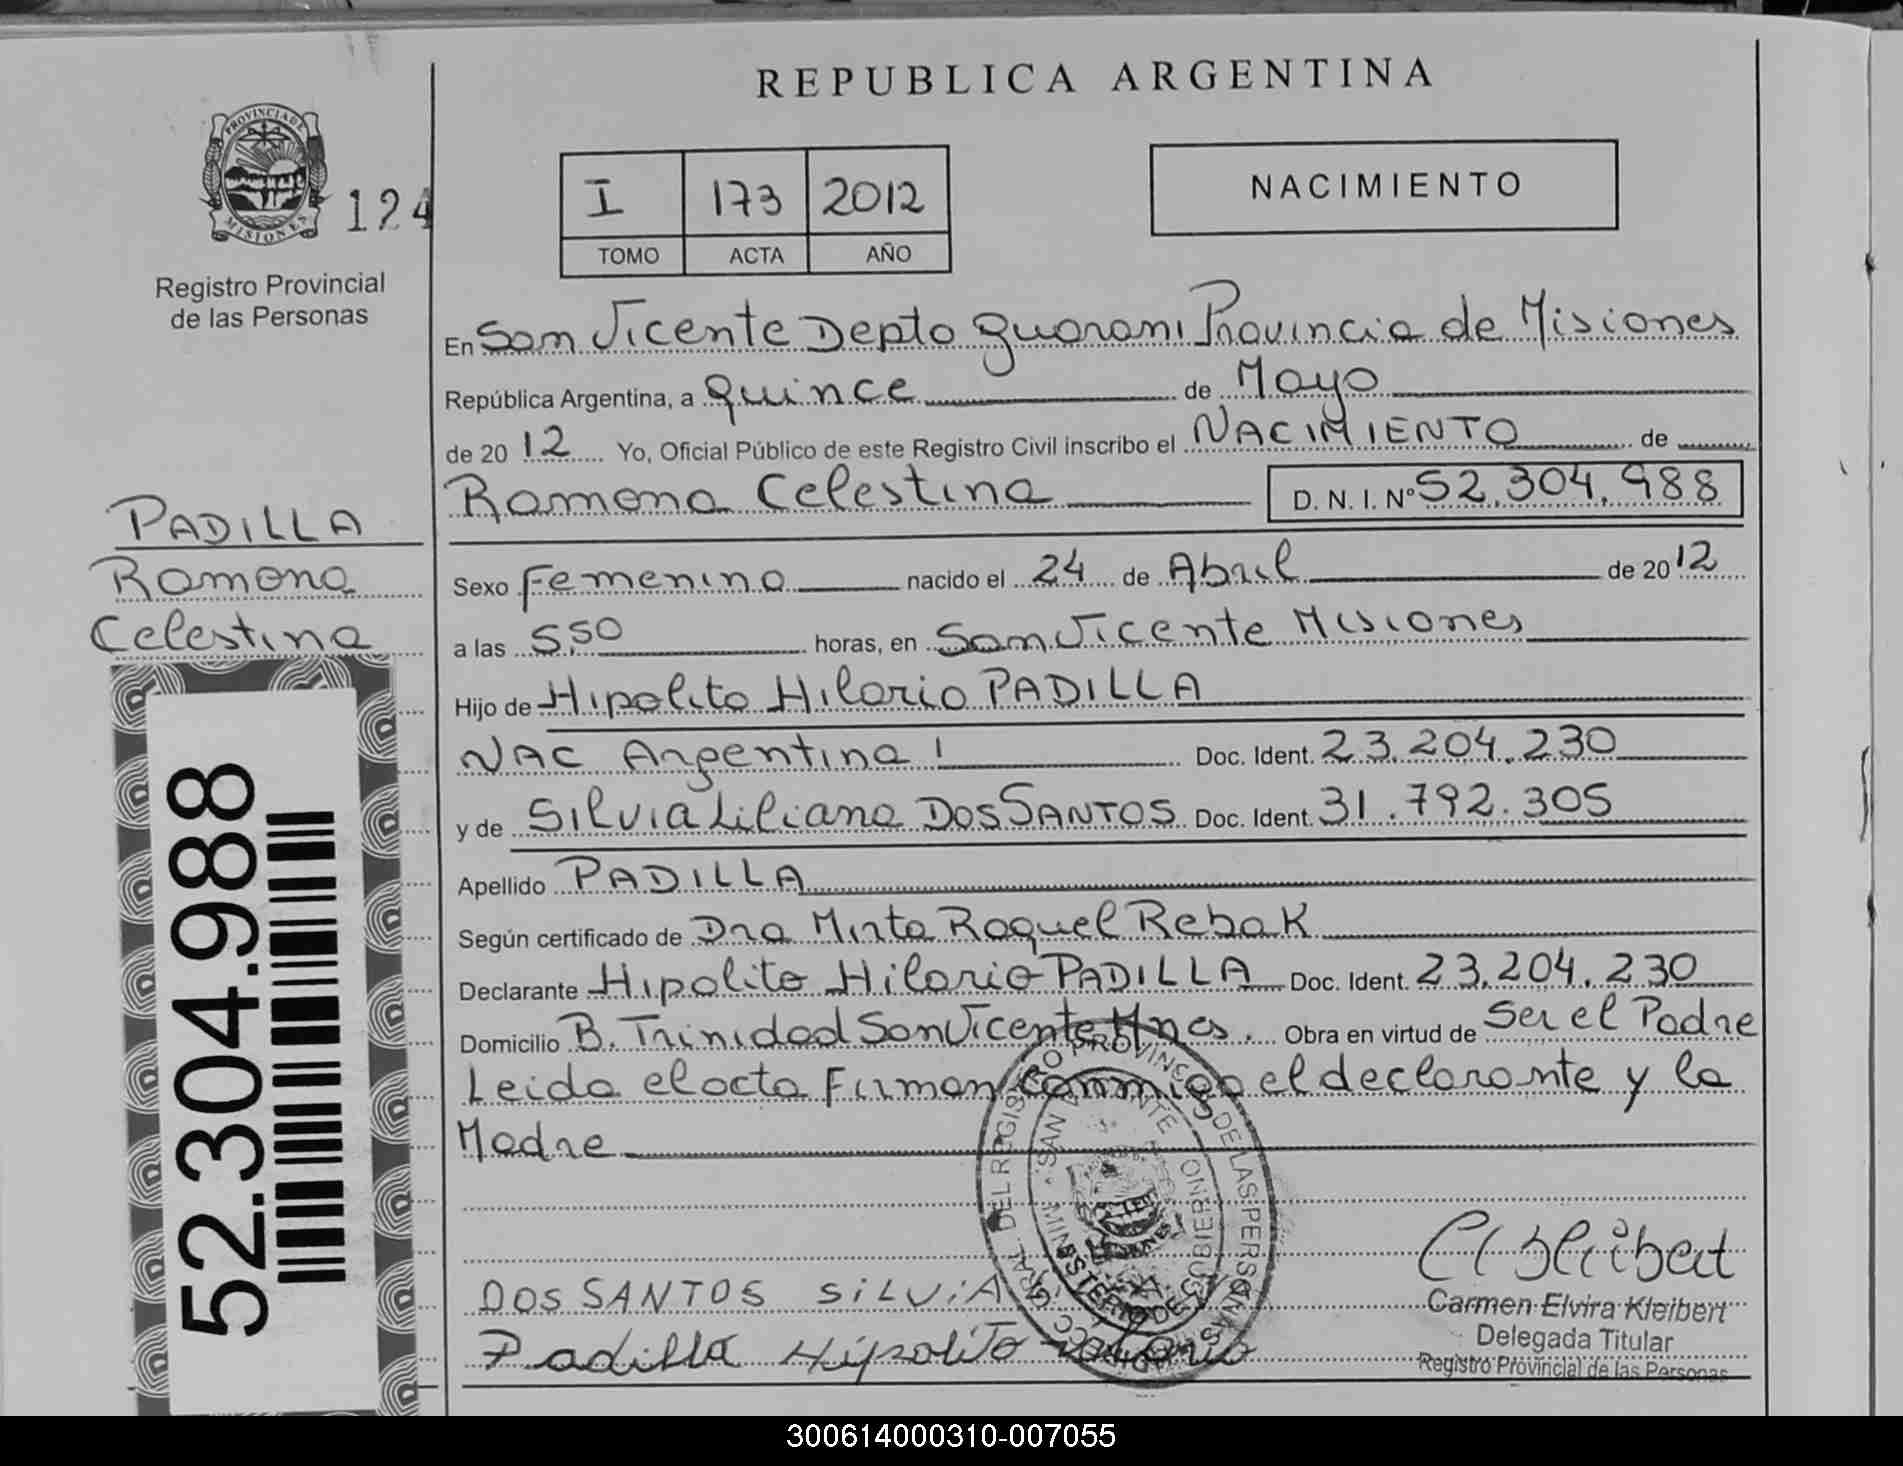 REPUBLICA ARGENTINA
PROVINCIA DE
MISIONES
124
Registro Provincial
de las Personas
I 173 2012
TOMO ACTA AÑO
NACIMIENTO
En San Vicente Depto Guarani Provincia de Misiones
República Argentina, a Quince de Mayo
de 2012 Yo, Oficial Público de este Registro Civil inscribo el NACIMIENTO de
Ramona Celestina D. N. I. Nº 52.304.988
PADILLA
Ramona
Celestina
52.304.988
Sexo Femenino nacido el 24 de Abril de 2012
a las 5,50 horas, en San Vicente Misiones
Hijo de Hipolito Hilario PADILLA
NAC Argentina ! Doc. Ident. 23.204.230
y de Silvia Liliana DOS SANTOS Doc. Ident. 31.792.305
Apellido PADILLA
Según certificado de Dra Mirta Raquel Rebak
Declarante Hipolito Hilario PADILLA Doc. Ident. 23.204.230
Domicilio B. Trinidad San Vicente Mnes. Obra en virtud de Ser el Padre
Leida el acta Firman conmigo el declarante y la
Madre
DOS SANTOS SiLViA
Padilla Hipolito Hilario
Carmen Elvira Kleibert
Delegada Titular
Registro Provincial de las Personas
300614000310-007055